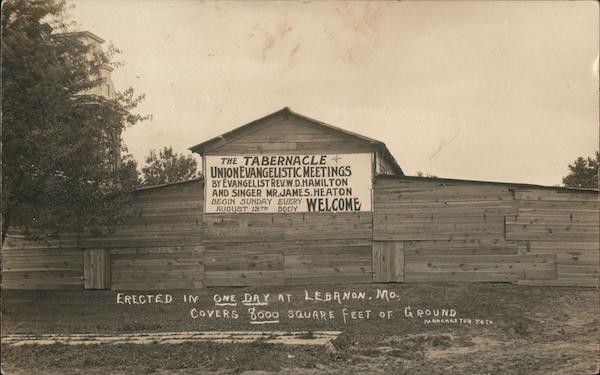 THE TABERNACLE
UNION EVANGELISTIC MEETINGS
BY EVANGELIST REV. W.D. HAMILTON
AND SINGER MR. JAMES. HEATON
BEGIN SUNDAY EVERY
AUGUST 18TH BODY WELCOME
ERECTED IN ONE DAY AT LEBANON, MO.
COVERS 8000 SQUARE FEET OF GROUND
MANCHESTER FOTO.